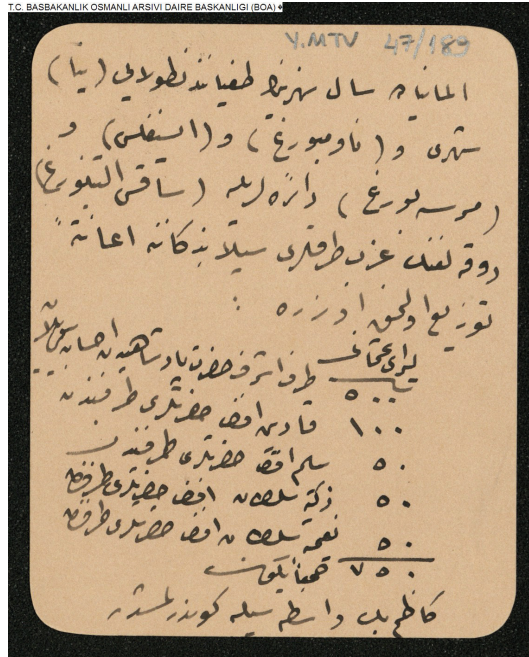 T.C. BASBAKANLIK OSMANLI ARSIVI DAIRE BASKANLIGI (BOA)
Y.MTV 47/189
المانیاده سال نهرینك طغیانندن طولایی (ینا)
شهری و (ناومبورغ) و
(مرسه بورغ) دائره لریله (ساقس
دوقه لغنك غرب طرفلری سیلابزدکاننه اعانةً
توزیع اولنمق اوزره :
لیرای عثمانی
۵۰۰ طرف اشرف حضرت پادشاهیدن احسان
۱۰۰ قادین افندی حضرتلری طرفندن
۵۰ سلیم افندی حضرتلری طرفندن
۵۰ زکیه سلطان افندی حضرتلری طرفندن
۵۰ نعیمه سلطان افندی حضرتلری طرفندن
۷۵۰ یکون
کاظم بك واسطه سیله کوندرلمشدر